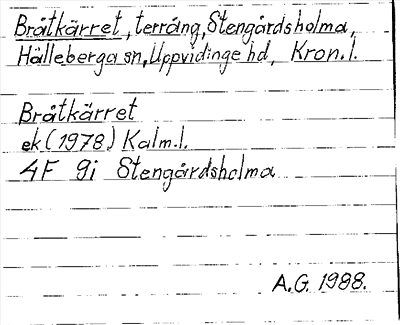 Bråtkärret, terräng, Stengårdsholma,
Hälleberga sn, Uppvidinge hd, Kron.l.
Bråtkärret
ek (1978) Kalm.l.
4F 9i Stengårdsholma
A.G. 1988.